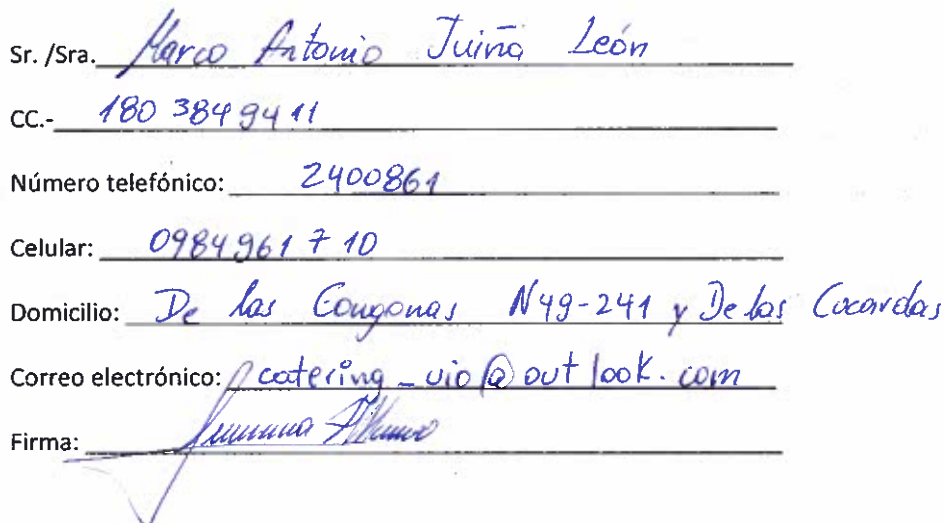 Sr. /Sra. Marco Antonio Tuiña León
CC.- 180 3849411
Número telefónico: 2400861
Celular: 0984961710
Domicilio: De las Congonas N49-241 y De las Cucardas
Correo electrónico: catering_uio@outlook.com
Firma: